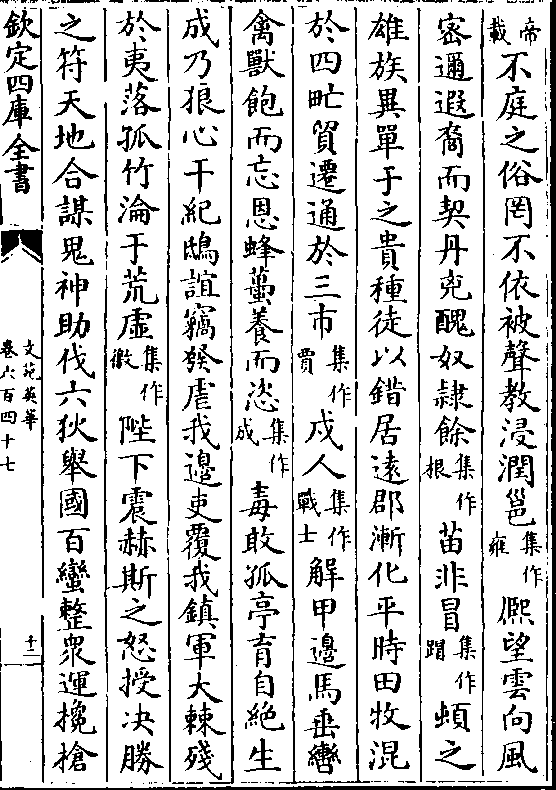 帝載不庭之俗罔不依被聲教浸潤邕集作雍熈望雲向風
宻邇遐裔而契丹兇醜奴𨽻餘集作根苗非冒集作蹋頓之
雄族異單于之貴種徒以錯居遠郡漸化平時田牧混
於四甿質遷通於三市集作賈戍人集作戰士解甲邊馬垂轡
禽獸飽而忘恩蜂蠆養而恣集作成毒敢孤亭育自絶生
成乃狼心干紀鴟誼竊發虐我邊吏覆我鎮軍大棘殘
於夷落孤竹淪于荒虛集作徼陛下震赫斯之怒授决勝
之符天地合謀鬼神助伐六狄舉國百蠻整衆運攙搶
欽定四庫全書
文苑英華
卷六百四十七
十二